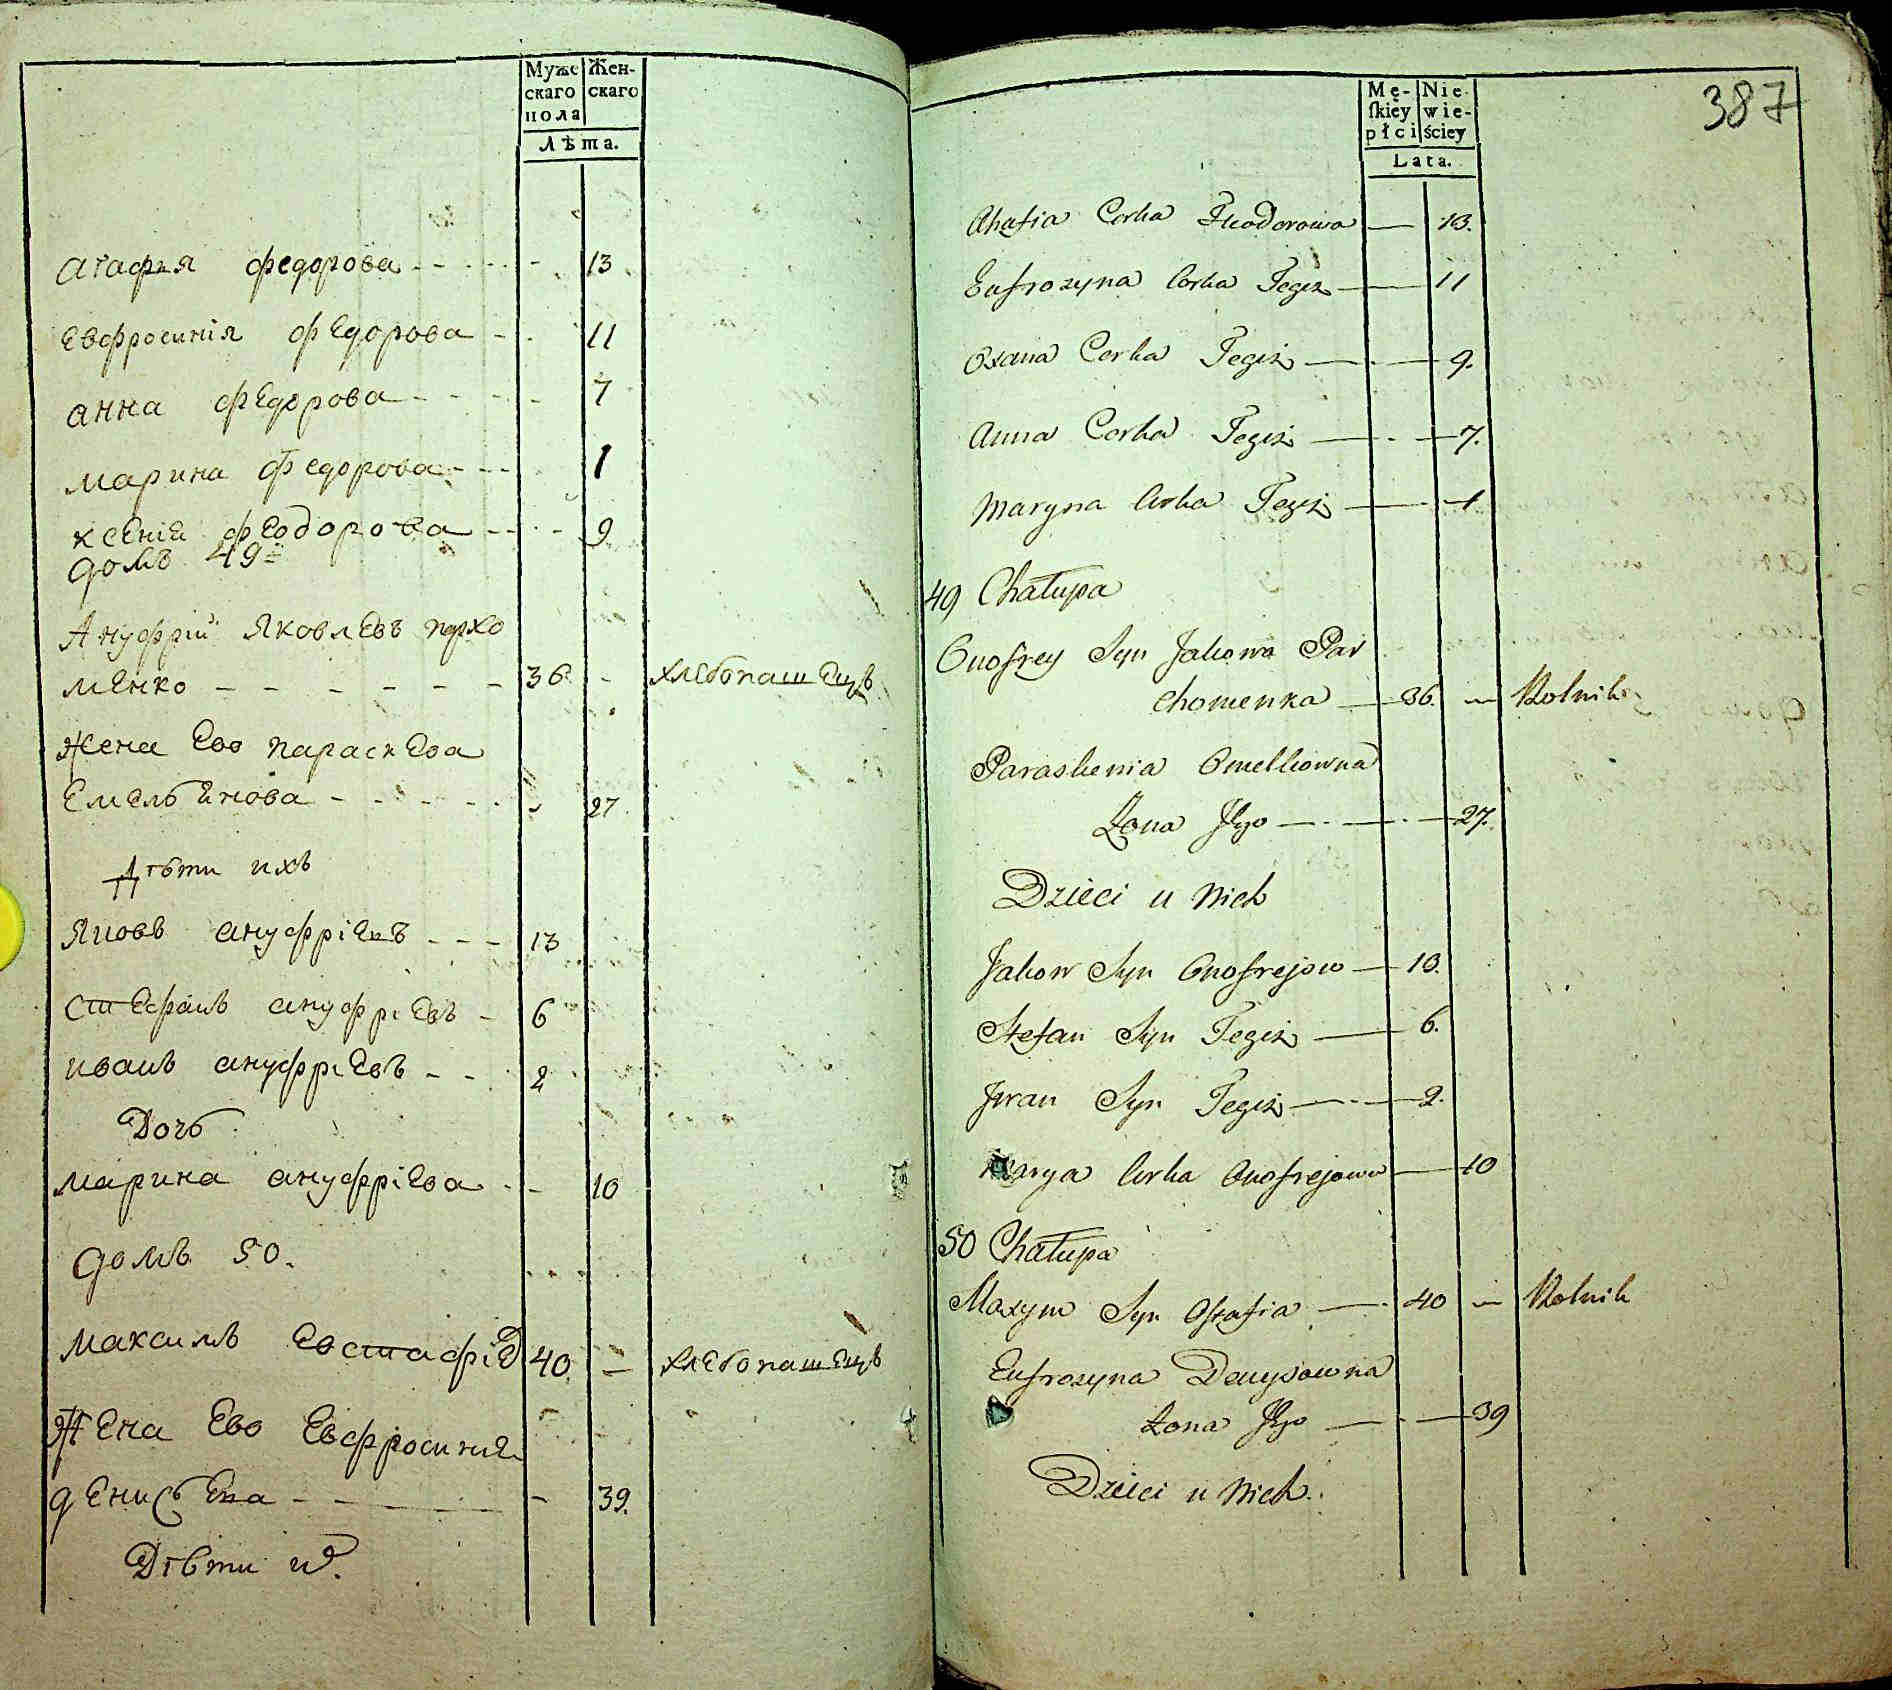 Муже
скаго
пола
Жен-
скаго
Лѣта.
агафия федорова - - - - - 13
Евфросинія федорова - - 11
анна федорова - - - - - 7
марина федорова - - - 1
ксения феодорова - - - 9
домъ 49
Ануфрій Яковлевъ пархо
менко - - - - - - 36 - хлебопашецъ
Жена Ево параскева
Емельянова - - - - - - 27
Дѣти ихъ
Яковъ ануфріевъ - - - 13
стефанъ ануфріевъ - 6
иванъ ануфріевъ - - 2
Дочь
марина ануфріева - - 10
домъ 50.
максимъ Евстафіе 40 - хлебопашецъ
Жена Ево Евфросиния
денисьева - - - - 39.
Дѣти и
387
Mę-
ſkiey
płci
Nie
wie-
ściey
Lata.
Ahafia Corka Fteodorowa — 13.
Eufrozyna Corka Tegiż — 11
Oxana Corka Tegiż — 9.
Anna Corka Tegiż — 7.
Maryna Corka Tegiż — 1
49 Chałupa
Onofrey Syn Jakowa Par
chomenka — 36. — Rolnik
Paraskewia Omelkowna
Żona Jego — 27.
Dzieci u Nich
Jakow Syn Onofrejow — 13.
Stefan Syn Tegiż — 6.
Jwan Syn Tegiż — 2.
Corka Onofrejowa — 10
50 Chałupa
Maxym Syn Ostafia — 40 — Rolnik
Eufrozyna Denysowna
Żona Jego — 39
Dzieci u Nich.